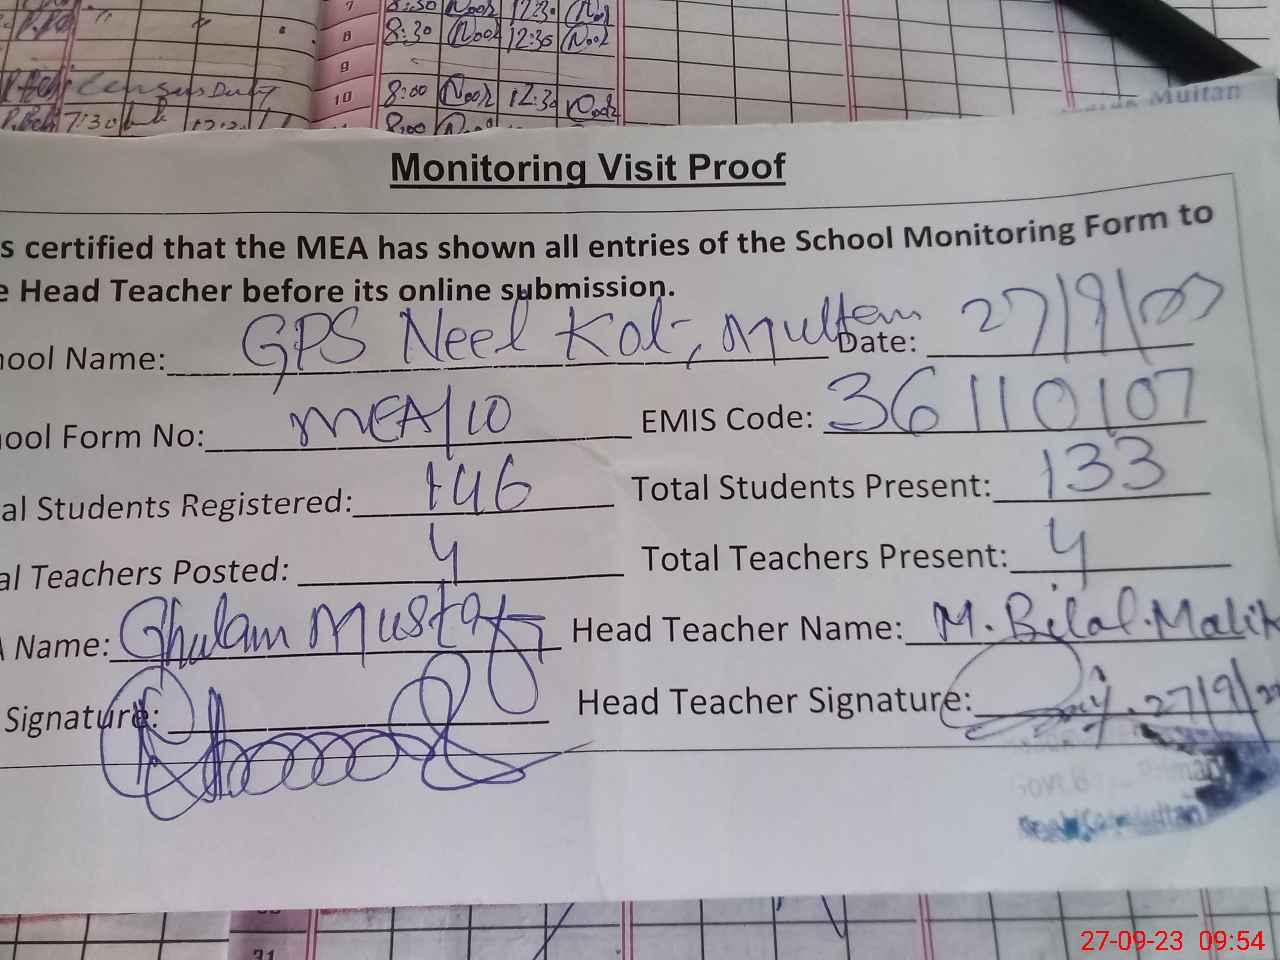 7 8:30 Noor 12:30 Noor
8 8:30 Noor 12:30 Noor
9
Census Duty 10 8:00 Noor 12:30 Noor
7:30 8:00
Multan
Monitoring Visit Proof
s certified that the MEA has shown all entries of the School Monitoring Form to
e Head Teacher before its online submission.
hool Name: GPS Neel Kot, Multan Date: 27/9/23
hool Form No: MEA/10 EMIS Code: 36110107
al Students Registered: 146 Total Students Present: 133
al Teachers Posted: 4 Total Teachers Present: 4
A Name: Ghulam Mustafa Head Teacher Name: M. Bilal Malik
Signature: Head Teacher Signature: 27/9/
Primary
Multan
31
27-09-23 09:54